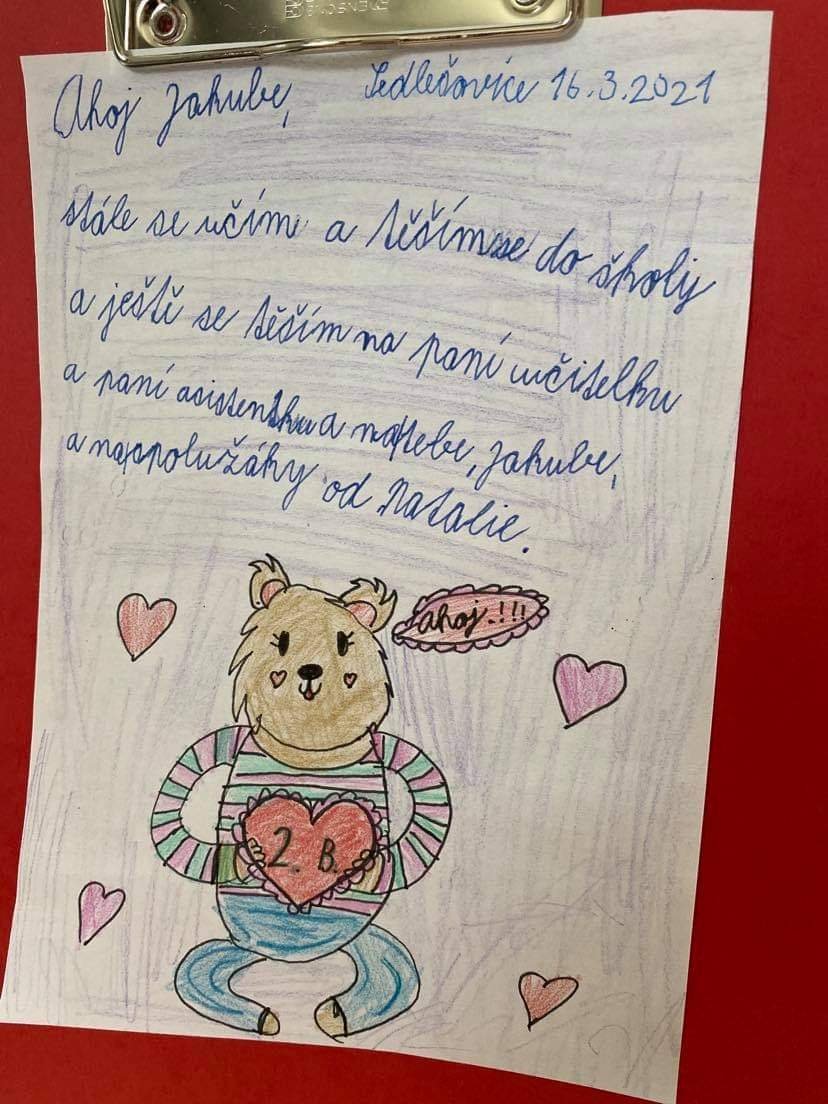 Ahoj Jakube, Sedlešovice 16.3.2021
stále se učím a těším se do školy
a ještě se těším na paní učitelku
a paní asistentku a na tebe, Jakube,
a na spolužáky od Natalie.
ahoj.!!!
2. B.